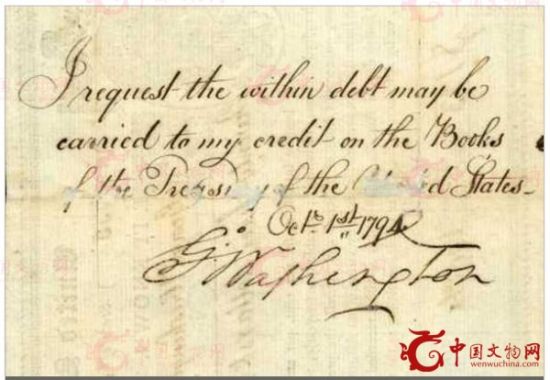 I request the within debt may be
carried to my credit on the Books
of the Treasury of the United States_
Octr. 1st 1794
Go. Washington
中国文物网
www.wenwuchina.com